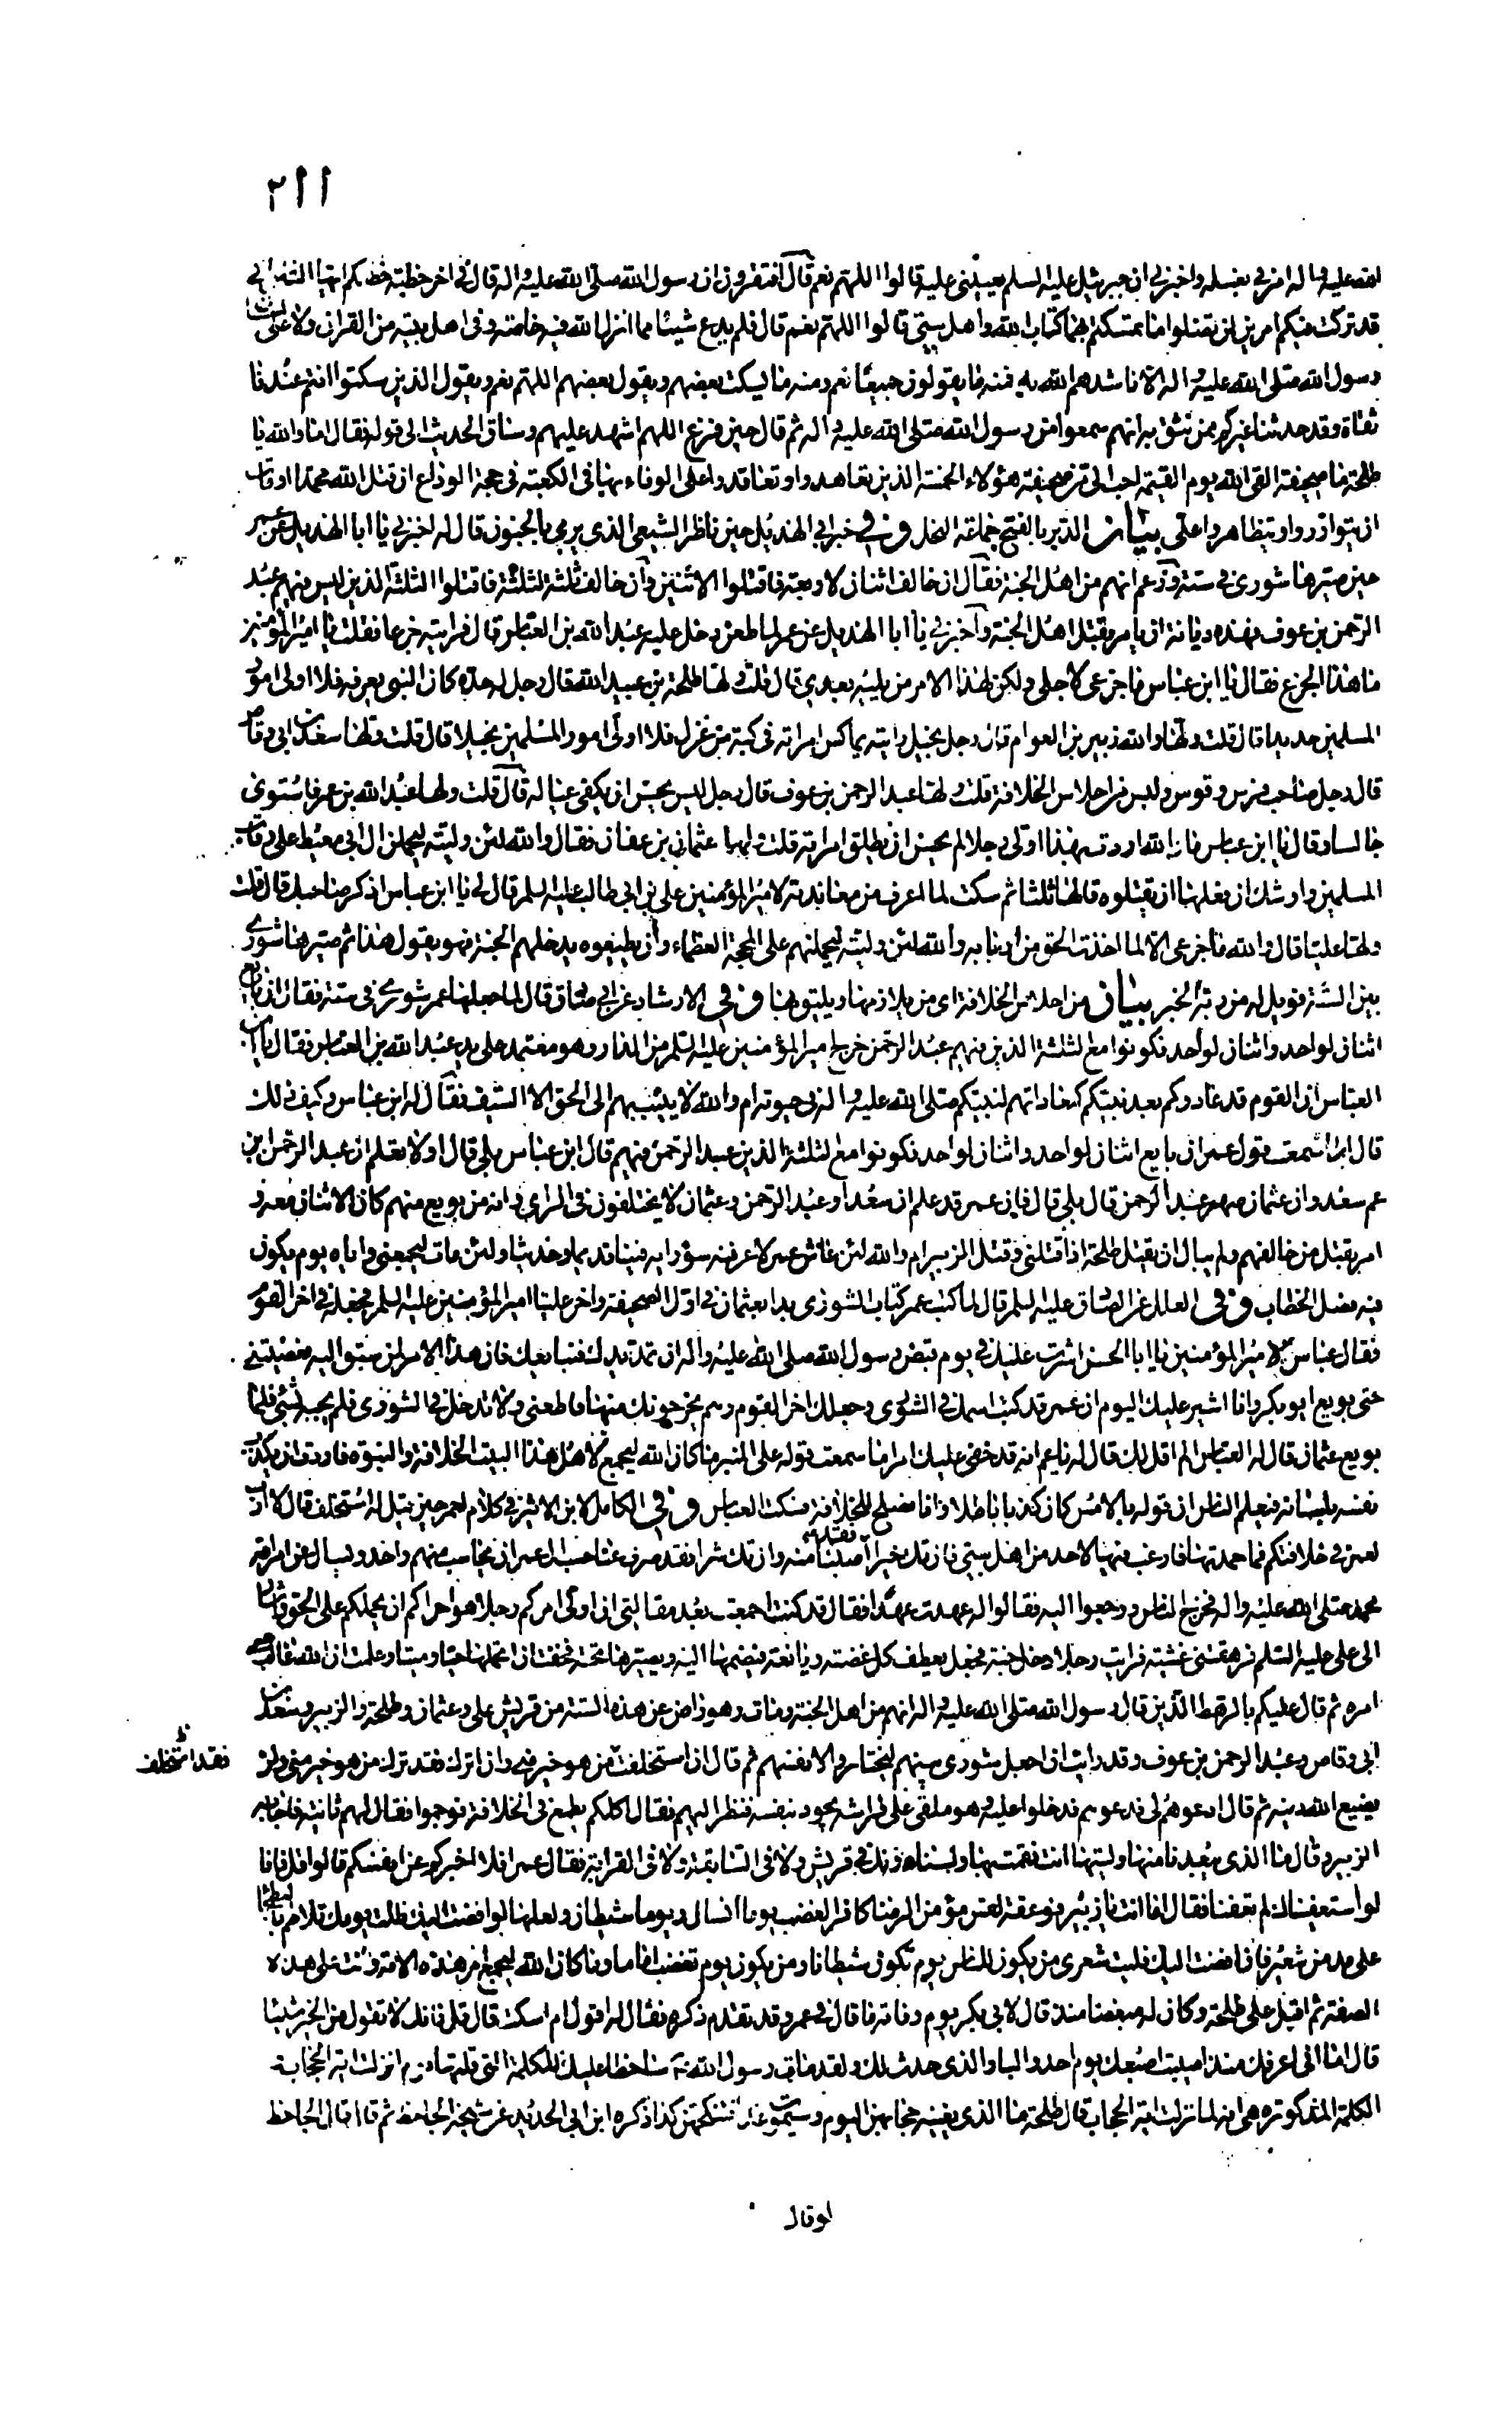 ٢١١
الله عليه واله امرني بغسله واخبرني ان جبرئيل عليه السلم يعينني عليه قالوا اللهم نعم قال افتقرون ان رسول الله صلى الله عليه واله قال في اخر خطبته خطبكم ايها الناس اني
قد تركت فيكم امرين لن تضلوا ما تمسكتم بهما كتاب الله واهل بيتي قالوا اللهم نعم قال فلم يدع شيئا مما انزل الله فيه خاصته وفي اهل بيته من القران ولا على لسان
رسول الله صلى الله عليه واله الا ناشدهم الله به فمنه ما يقولون جميعا نعم ومنه ما يسكت بعضهم ويقول بعضهم اللهم نعم ويقول الذين سكتوا انتم عندنا
ثقاة وقد حدثنا غيركم ممن نثق به انهم سمعوا من رسول الله صلى الله عليه واله ثم قال حين فرغ اللهم اشهد عليهم وساق الحديث الى قوله فقال اما والله يا
طلحة ما صحيفة القى الله يوم القيمة احب الي من صحيفة هؤلاء الخمسة الذين تعاهدوا وتعاقدوا على الوفاء بها في الكعبة في حجة الوداع ان قتل الله محمدا او مات
ان يتوازروا ويتظاهروا علي بيان الدبر بالفتح جماعة النحل و في خبر ابي الهذيل حين ناظر الشيعي الذي يرمي بالجنون قال له اخبرني يا ابا الهذيل عن عمر
حين صيرها شورى في ستة وزعم انهم من اهل الجنة فقال ان خالف اثنان لاربعة فاقتلوا الاثنين وان خالف ثلثة لثلثة فاقتلوا الثلثة الذين ليس منهم عبد
الرحمن بن عوف فهذه ديانة ان يامر بقتل اهل الجنة واخبرني يا ابا الهذيل عن عمر لما طعن دخل عليه عبد الله بن العباس قال فرايته جزعا فقلت يا امير المؤمنين
ما هذا الجزع فقال يا ابن عباس ما جزعي لاجلي ولكن لهذا الامر من يليه بعدي قال قلت ولها طلحة بن عبيد الله قال رجل له حدة كان النبي يعرفه فلا اولي امور
المسلمين حديدا قال قلت ولها والله زبير بن العوام قال رجل بخيل رايته يماكس امراته في كبة من غزل فلا اولي امور المسلمين بخيلا قال قلت ولها سعد بن ابي وقاص
قال رجل صاحب فرس وقوس وليس من احلاس الخلافة قلت ولها عبد الرحمن بن عوف قال رجل ليس يحسن ان يكفي عياله قال قلت ولها عبد الله بن عمر فاستوى
جالسا وقال يا ابن عباس ما الله اردت بهذا اولي رجلا لم يحسن ان يطلق امراته قلت ولها عثمان بن عفان فقال والله لئن وليته ليحملن ال ابي معيط على رقاب
المسلمين واوشك ان فعلها ان يقتلوه قالها ثلثا ثم سكت لما اعرف من معاندته لامير المؤمنين علي بن ابي طالب عليه السلم قال لي يا ابن عباس اذكر صاحبك قال قلت
ولها عليا قال والله ما جزعي الا لما اخذت الحق من اربابه والله لئن وليته ليحملنهم على المحجة العظماء وان يطيعوه يدخلهم الجنة فهو يقول هذا ثم صيرها شورى
بين الستة فويل له من ربه الخبر بيان من احلاس الخلافة اي من يلازمها ويليق بها و في الارشاد عن ابي صادق قال لما جعلها عمر شورى في ستة فقال ان بايع
اثنان لواحد واثنان لواحد فكونوا مع الثلثة الذين فيهم عبد الرحمن خرج امير المؤمنين عليه السلم من الدار وهو معتمد على يد عبد الله بن العباس فقال يا ابن
العباس ان القوم قد عادوكم بعد نبيكم كمعاداتهم لنبيكم صلى الله عليه واله في حيوته ام والله لا ينيب بهم الى الحق الا السيف فقال له ابن عباس وكيف ذلك
قال اما سمعت قول عمر ان بايع اثنان لواحد واثنان لواحد فكونوا مع الثلثة الذين عبد الرحمن فيهم قال ابن عباس بلى قال اولا تعلم ان عبد الرحمن ابن
عم سعد وان عثمان صهر عبد الرحمن قال بلى قال فان عمر قد علم ان سعدا وعبد الرحمن وعثمان لا يختلفون في الراي وانه من بويع منهم كان الاثنان معه و
امر بقتل من خالفهم ولم يبال ان يقتل طلحة اذا قتلني وقتل الزبير ام والله لئن عاش عمر لاعرفنه سوء رايه فينا قديما وحديثا ولئن مات ليجمعني واياه يوم يكون
فيه فصل الخطاب و في العلل عن الصادق عليه السلم قال لما كتب عمر كتاب الشورى بدا بعثمان في اول الصحيفة واخر عليا امير المؤمنين عليه السلم فجعله في اخر القوم
فقال عباس لامير المؤمنين يا ابا الحسن اشرت عليك في يوم قبض رسول الله صلى الله عليه واله ان تمد يدك فنبايعك فان هذا الامر لمن سبق اليه فعصيتني
حتى بويع ابو بكر وانا اشير عليك اليوم ان عمر قد كتب اسمك في الشورى وجعلك اخر القوم وهم يخرجونك منها فاطعني ولا تدخل في الشورى فلم يجبه بشئ فلما
بويع عثمان قال له العباس الم اقل لك قال له يا عم انه قد خفي عليك امر اما سمعت قوله على المنبر ما كان الله ليجمع لاهل هذا البيت الخلافة والنبوة فاردت ان يكذب
نفسه بلسانه فيعلم الناس ان قوله بالامس كان كذبا باطلا وانا نصلح للخلافة فسكت العباس و في الكامل لابن الاثير في كلام لعمر حين قيل له استخلف قال لا ارب
لعمر في خلافتكم فما حمدتها فارغب فيها لاحد من اهل بيتي فان تك خيرا فقد اصبنا منه وان تك شرا فقد صرف عنا حسب ال عمر ان يحاسب منهم واحد ويسال عن امر امة
محمد صلى الله عليه واله فخرج الناس ورجعوا اليه فقالوا له عهدت عهدا فقال قد كنت اجمعت بعد مقالتي ان اولي امركم رجلا هو احراكم ان يحملكم على الحق واشار
الى علي عليه السلم فرهقتني غشية فرايت رجلا دخل جنة فجعل يقطف كل غضة ويانعة فيضمها اليه ويصيرها تحته فخفت ان اتحملها حيا وميتا وعلمت ان الله غالب
امره ثم قال عليكم بالرهط الذين قال رسول الله صلى الله عليه واله انهم من اهل الجنة ومات وهو راض عن هذه الستة من قريش علي وعثمان وطلحة والزبير وسعد بن
ابي وقاص وعبد الرحمن بن عوف وقد رايت ان اجعل شورى بينهم ليختاروا لانفسهم ثم قال ان استخلفت من هو خير مني وان اترك فقد ترك من هو خير مني ولن
فقد استخلف
يضيع الله دينه ثم قال ادعوهم لي فدعوهم فدخلوا عليه وهو ملقى على فراشه يجود بنفسه فنظر اليهم فقال اكلكم يطمع في الخلافة فوجموا فقال لهم ثانية فاجابه
الزبير وقال ما الذي يبعدنا منها وليتها انت فقمت بها ولسنا دونك في قريش ولا في السابقة ولا في القرابة فقال عمر افلا اخبركم عن انفسكم قالوا قل فانا
لو استعفيناك لم تعفنا فقال اما انت يا زبير فوعقة لعس مؤمن الرضا كافر الغضب يوما انسان ويوما شيطان ولعلها لو افضت اليك ظلت يومك تلاطم بالبطحاء
على مد من شعير فان افضت اليك فليت شعري من يكون للناس يوم تكون شيطانا ومن يكون يوم تغضب اماما وما كان الله ليجمع امر هذه الامة وانت على هذه
الصفة ثم اقبل على طلحة وكان له مبغضا منذ قال لابي بكر يوم وفاته ما قال في عمر وقد تقدم ذكره فقال له اقول ام اسكت قال قل فانك لا تقول من الخير شيئا
قال اما اني اعرفك منذ اصيبت اصبعك يوم احد والباو الذي حدث لك ولقد مات رسول الله ساخطا عليك للكلمة التي قلتها يوم انزلت اية الحجاب
الكلمة المذكورة هي انه لما نزلت اية الحجاب قال طلحة ما الذي يغنيه حجابهن اليوم وسيموت غدا فننكحهن كذا ذكره ابن ابي الحديد عن شيخه الجاحظ ثم قال قال الجاحظ
لو قال